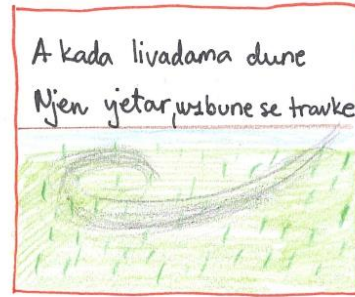 A kada livadama dune
Njen vjetar, uzbune se travke